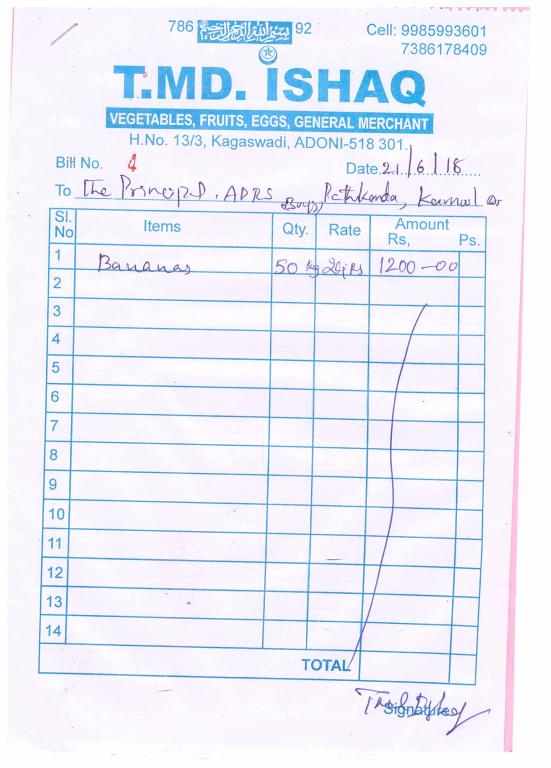 786 بسم الله الرحمن الرحيم 92
Cell: 9985993601
7386178409
T.MD. ISHAQ
VEGETABLES, FRUITS, EGGS, GENERAL MERCHANT
H.No. 13/3, Kagaswadi, ADONI-518 301.
Bill No. 4 Date 21/6/18
To The Principal, APRS Boys, Kurnool
Sl. No Items Qty. Rate Amount Rs, Ps.
1 Bananas 50 kg 1200-00
2
3
4
5
6
7
8
9
10
11
12
13
14
TOTAL
Signature